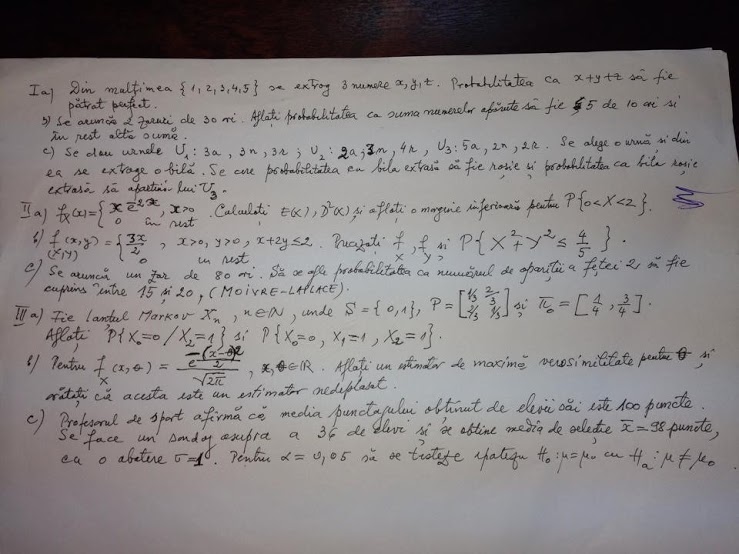 I a) Din mulțimea {1,2,3,4,5} se extrag 3 numere x,y,z. Probabilitatea ca x+y+z să fie
pătrat perfect.
b) Se aruncă 2 zaruri de 30 ori. Aflați probabilitatea ca suma numerelor apărute să fie 5 de 10 ori și
în rest altă sumă.
c) Se dau urnele U1: 3a, 3n, 3r; U2: 2a, 3n, 4r, U3: 5a, 2n, 2r. Se alege o urnă și din
ea se extrage o bilă. Se cere probabilitatea ca bila extrasă să fie roșie și probabilitatea ca bila roșie
extrasă să aparțină lui U3.
II a) fX(x) = { x e^-2x, x>0
0 în rest. Calculați E(X), D²(X) și aflați o margine inferioară pentru P{0<X<2}.
b) f(X,Y)(x,y) = { 3x/2, x>0, y>0, x+2y≤2. Precizați fX, fY și P{X²+Y² ≤ 4/5}.
0 în rest
c) Se aruncă un zar de 80 ori. Să se afle probabilitatea ca numărul de apariții a feței 2 să fie
cuprins între 15 și 20, (MOIVRE-LAPLACE).
III a) Fie lanțul Markov Xn, n∈N, unde S = {0,1}, P = [1/3 2/3 2/3 1/3] și π0 = [1/4, 3/4].
Aflați P{X0=0/X2=1} și P{X0=0, X1=1, X2=1}.
b) Pentru fX(x,θ) = e^-(x-θ)²/2 / √2π, x,θ∈R. Aflați un estimator de maximă verosimilitate pentru θ și
arătați că acesta este un estimator nedeplasat.
c) Profesorul de sport afirmă că media punctajului obținut de elevii săi este 100 puncte.
Se face un sondaj asupra a 36 de elevi și se obține media de selecție x̄=98 puncte,
cu o abatere σ=1. Pentru α=0,05 să se testeze ipoteza H0: μ=μ0 cu Ha: μ≠μ0